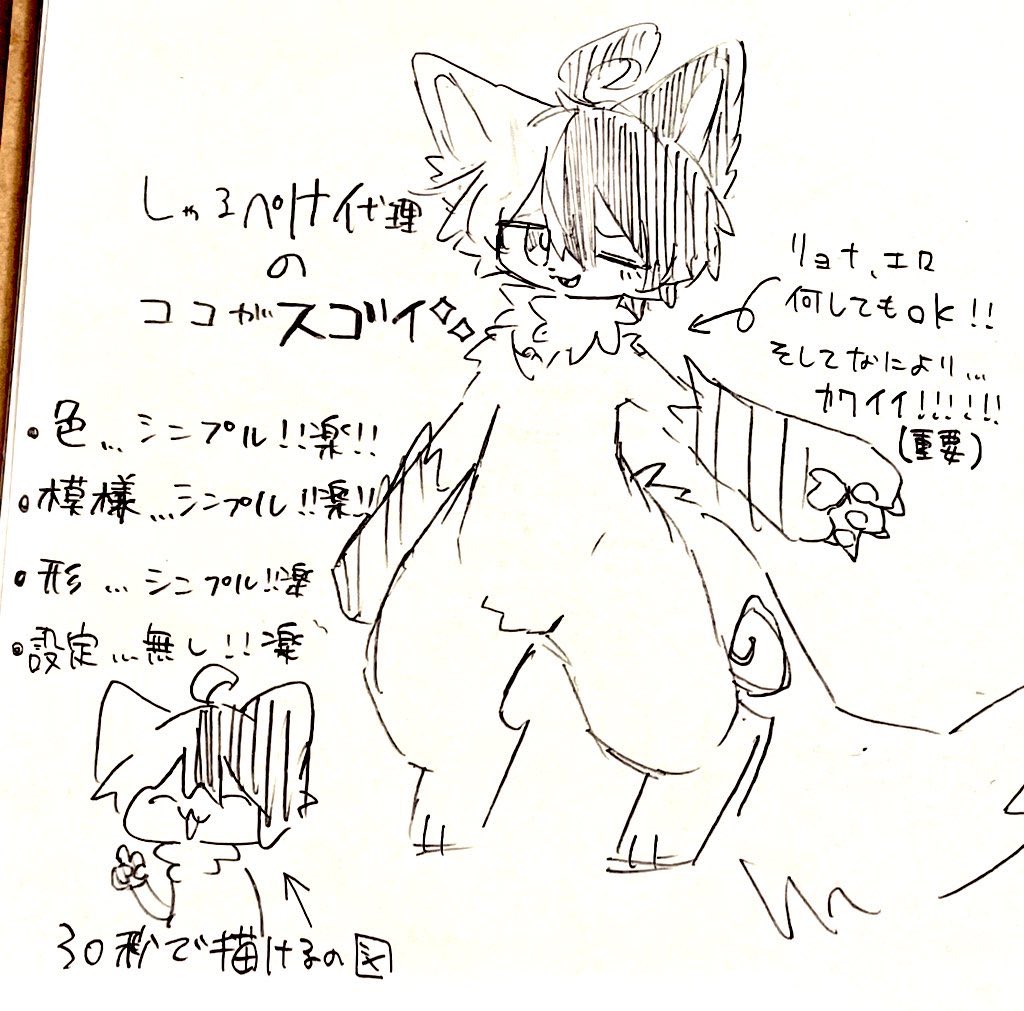 しゃるぺけ代理
の
ココがスゴイ
・色…シンプル!!楽!!
・模様…シンプル!!楽!!
・形…シンプル!!楽
・設定…無し!!楽
30秒で描けるの図
リョナ、エロ
何してもOK!!
そしてなにより…
カワイイ!!!!!!
(重要)